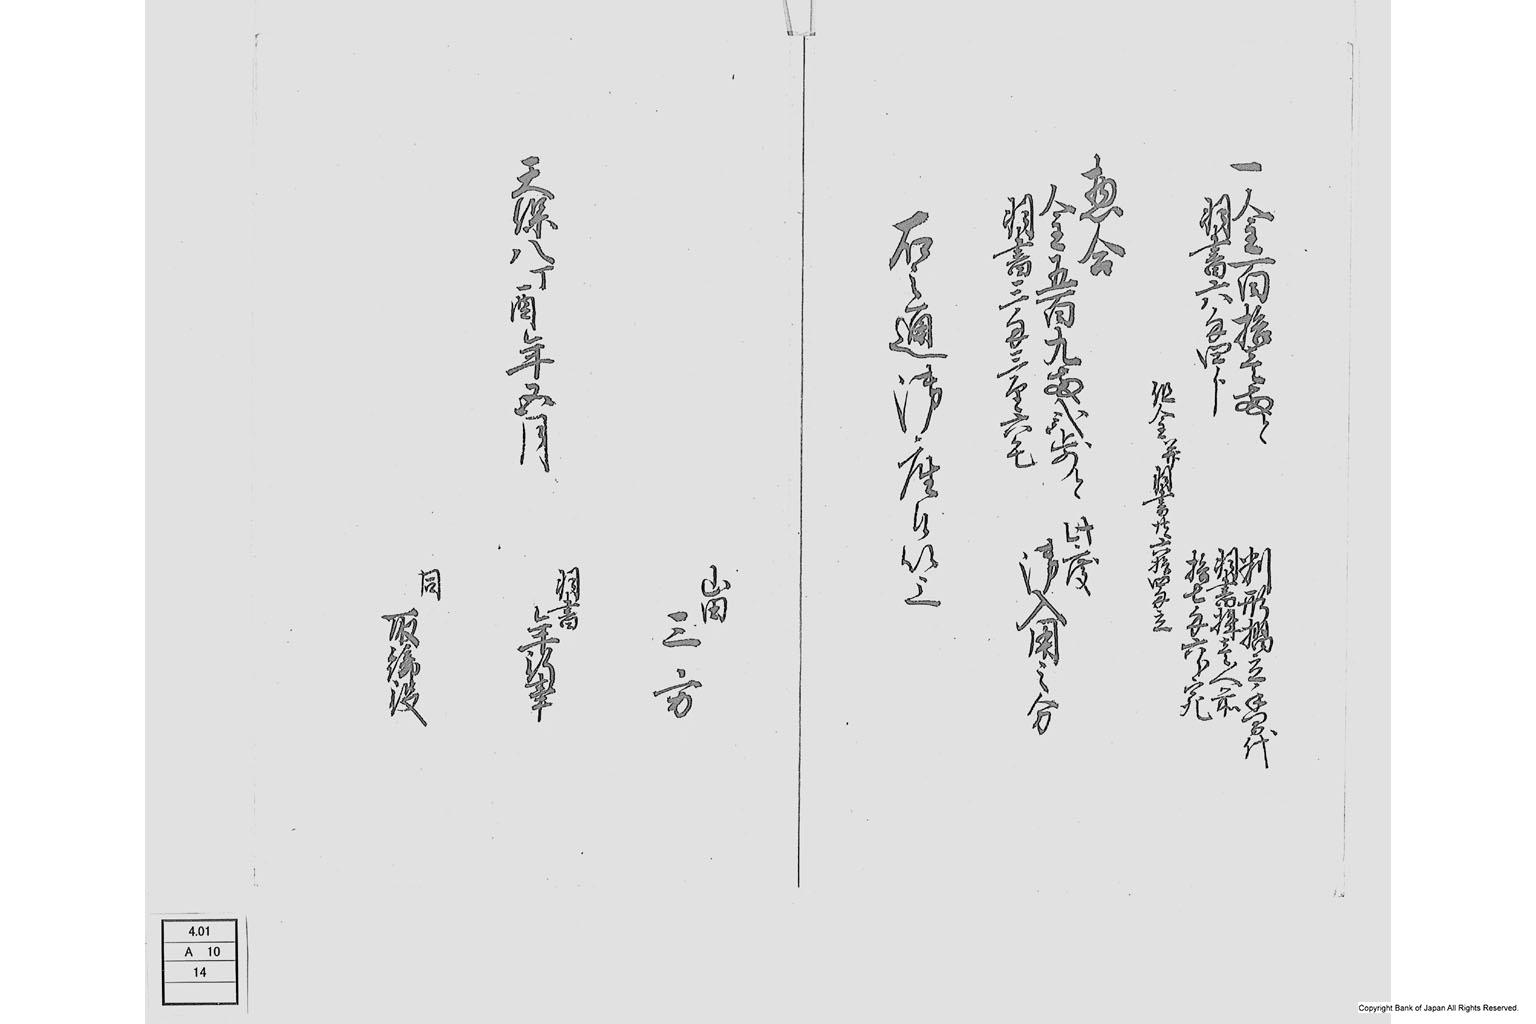 一 金百拾壱両ト
羽書六匁四分
判形摺立手間代
羽書拝壱人前
拾七匁六分宛
但金并羽書共六拾四匁立
惣合
金五百九両弐歩ト
羽書三匁三厘六毛
此度
御入用之分
右之通御座候以上
天保八丁酉年五月
山田
三方
羽書
年行事
同
取締役
4.01
A 10
14
Copyright Bank of Japan All Rights Reserved.